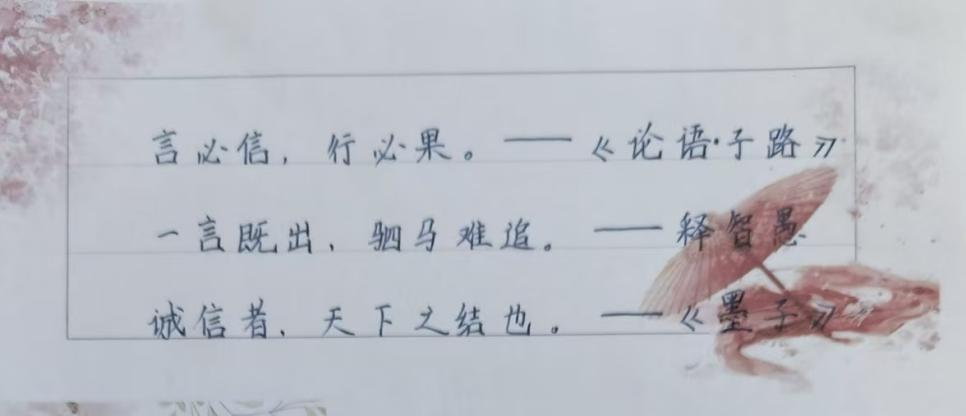 言必信，行必果。——《论语·子路》
一言既出，驷马难追。——释智愚
诚信者，天下之结也。——《墨子》